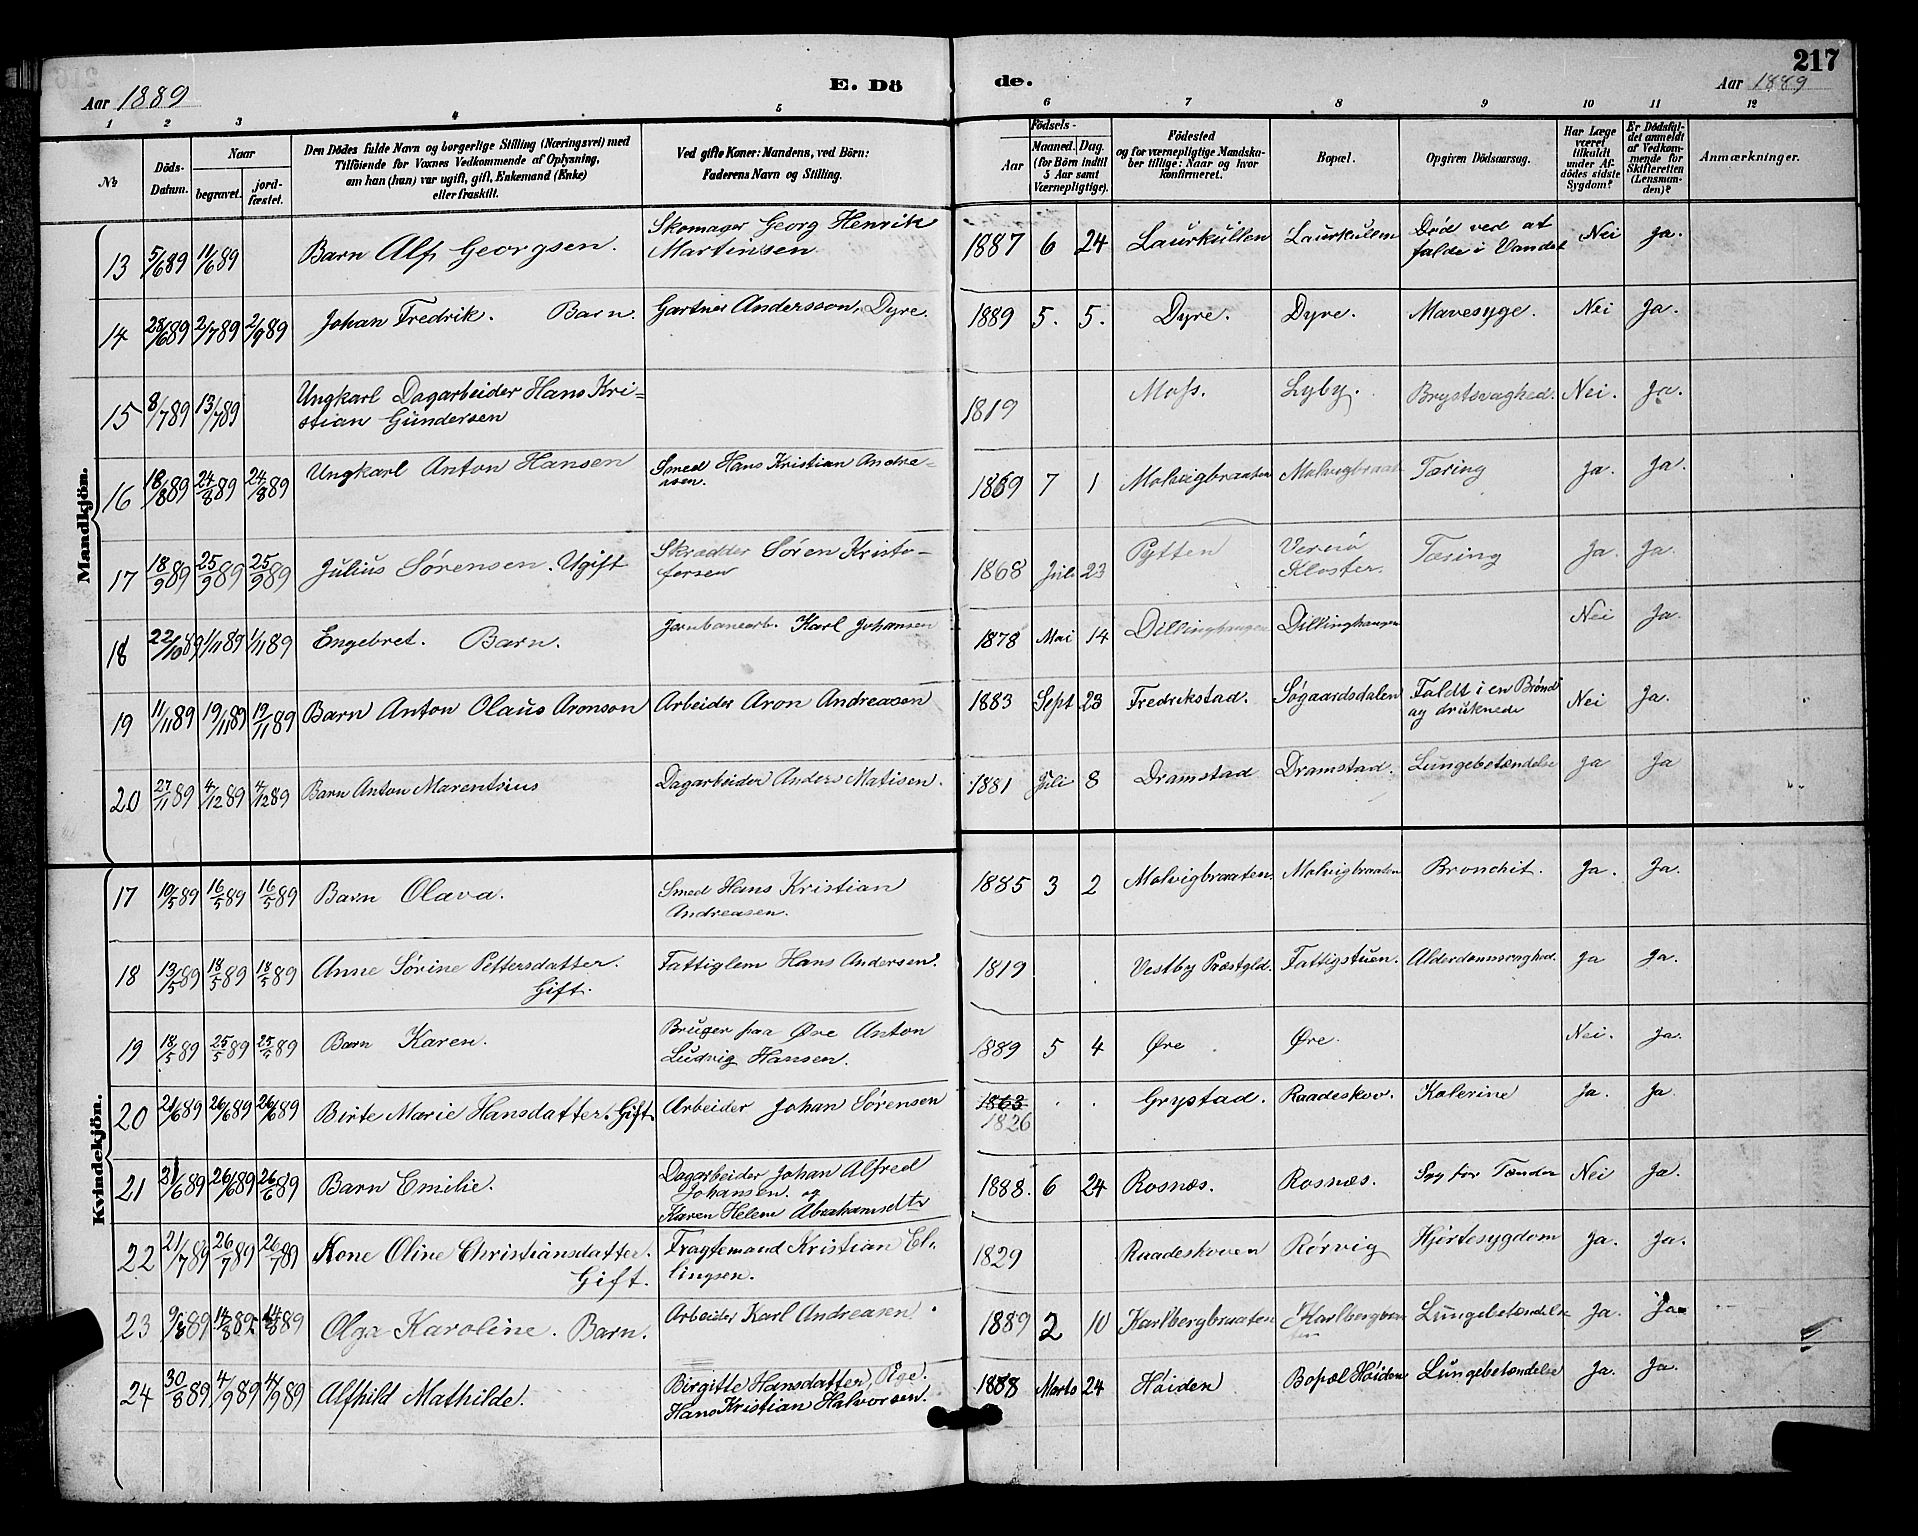 217
Aar 1889
E. Dö
de.
Aar 1889
1 2 3 4 5 6 7 8 9 10 11 12
No
Döds-Datum.
Naar
begravet.
jord-fæstet.
Den Dödes fulde Navn og borgerlige Stilling (Næringsvei) med
Tilföiende for Voxnes Vedkommende af Oplysning,
om han (hun) var ugift, gift, Enkemand (Enke)
eller fraskilt.
Ved gifte Koner: Mandens, ved Börn:
Faderens Navn og Stilling.
Födsels-
Aar
Maaned. Dag.
(for Börn indtil
5 Aar samt
Værnepligtige).
Födested
og for værnepligtige Mandska-
ber tillige: Naar og hvor
konfirmeret.
Bopæl.
Opgiven Dödsaarsag.
Har Læge
været
tilkaldt
under Af-
dödes sidste
Sygdom?
Er Dödsfal-
det anmeldt
af Vedkom-
mende for
Skifteretten
(Lensman-
den)?
Anmærkninger.
Mandkjön.
13 5/6 89 11/6 89 Barn Alf Georgsen. Skomager Georg Henrik
Martinsen 1887 6 24 Laurkullen Laurkullen Död ved at
falde i Vandet Nei Ja.
14 28/6 89 2/7 89 2/9 89 Johan Fredrik. Barn. Gartner Andersson, Dyre. 1889 5. 5. Dyre. Dyre. Mavesyge. Nei Ja.
15 8/7 89 13/7 89 Ungkarl Dagarbeider Hans Kri-
stian Gundersen 1819 Moss. Lyby. Brystsvaghed. Nei. Ja.
16 18/8 89 24/8 89 24/8 89 Ungkarl Anton Hansen Smed Hans Kristian Andre-
asen. 1869 7 1 Molvigbraaten Molvigbraat Tæring Ja. Ja.
17 18/9 89 25/9 89 25/9 89 Julius Sørensen. Ugift Skrædder Søren Kristo-
fersen 1868 Juli 23 Pytten Vernø
Kloster. Tæring Ja. Ja.
18 22/10 89 1/11 89 1/11 89 Engebret. Barn. Jernbanearb. Karl Johansen 1878 Mai 14 Dillinghaugen Dillinghaugen Nei Ja.
19 11/11 89 19/11 89 19/11 89 Barn Anton Olaus Aronson Arbeider Aron Andreasen 1883 Sept 23 Fredrikstad. Søgaardsdalen Faldt i en Brønd
og druknede Nei Ja.
20 27/11 89 4/12 89 4/12 89 Barn Anton Marentsius Dagarbeider Anders Matisen. 1881 Juli 8 Dramstad Dramstad. Lungebetændelse Ja Ja
Kvindekjön.
17 10/5 89 16/5 89 16/5 89 Barn Olava. Smed Hans Kristian
Andreasen. 1885 3 2 Molvigbraaten. Molvigbraaten Bronchit. Ja. Ja.
18 13/5 89 18/5 89 18/5 89 Anne Sørine Pettersdatter.
Gift. Fattiglem Hans Andersen. 1819 Vestby Præstgld. Fattigstuen. Alderdomssvaghed. Ja Ja.
19 18/5 89 25/5 89 25/5 89 Barn Karen. Bruger paa Øre Anton
Ludvig Hansen. 1889 5 4 Øre Øre. Nei. Ja.
20 21/6 89 26/6 89 26/6 89 Birte Marie Hansdatter. Gift Arbeider Johan Sørensen 1863
1826 Grystad. Raadeskov. Kolerine Ja. Ja.
21 21/6 89 26/6 89 26/6 89 Barn Emilie. Dagarbeider Johan Alfred
Johansen. og
Karen Helene Abrahamsdtr 1888. 6 24 Rosnæs. Rosnæs. Syg for Tænder Nei Ja.
22 21/7 89 26/7 89 26/7 89 Kone Oline Christiansdatter.
Gift. Fragtemand Kristian El-
lingsen. 1829 Raadeskoven Rørvig Hjertesygdom Ja. Ja.
23 9/8 89 14/8 89 14/8 89 Olga Karoline. Barn. Arbeider Karl Andreasen. 1889 2 10 Karlbergbraaten Lungebetændelse Ja. Ja
24 30/8 89 4/9 89 4/9 89 Alfhild Mathilde. Birgitte Hansdatter, Pige.
Hans Kristian Halvorsen. 1888 Marts 24 Høiden Bopæl Høiden Lungebetændelse Ja. Ja.